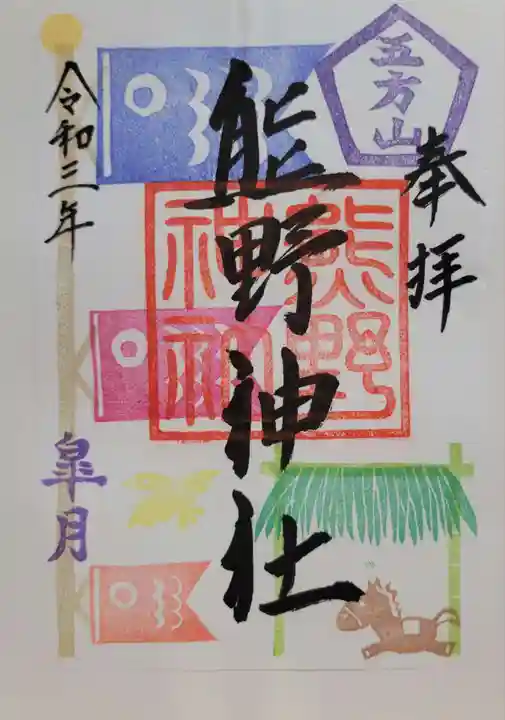 五方山
奉拝
熊野神社
熊野
神社
令和三年
皐月